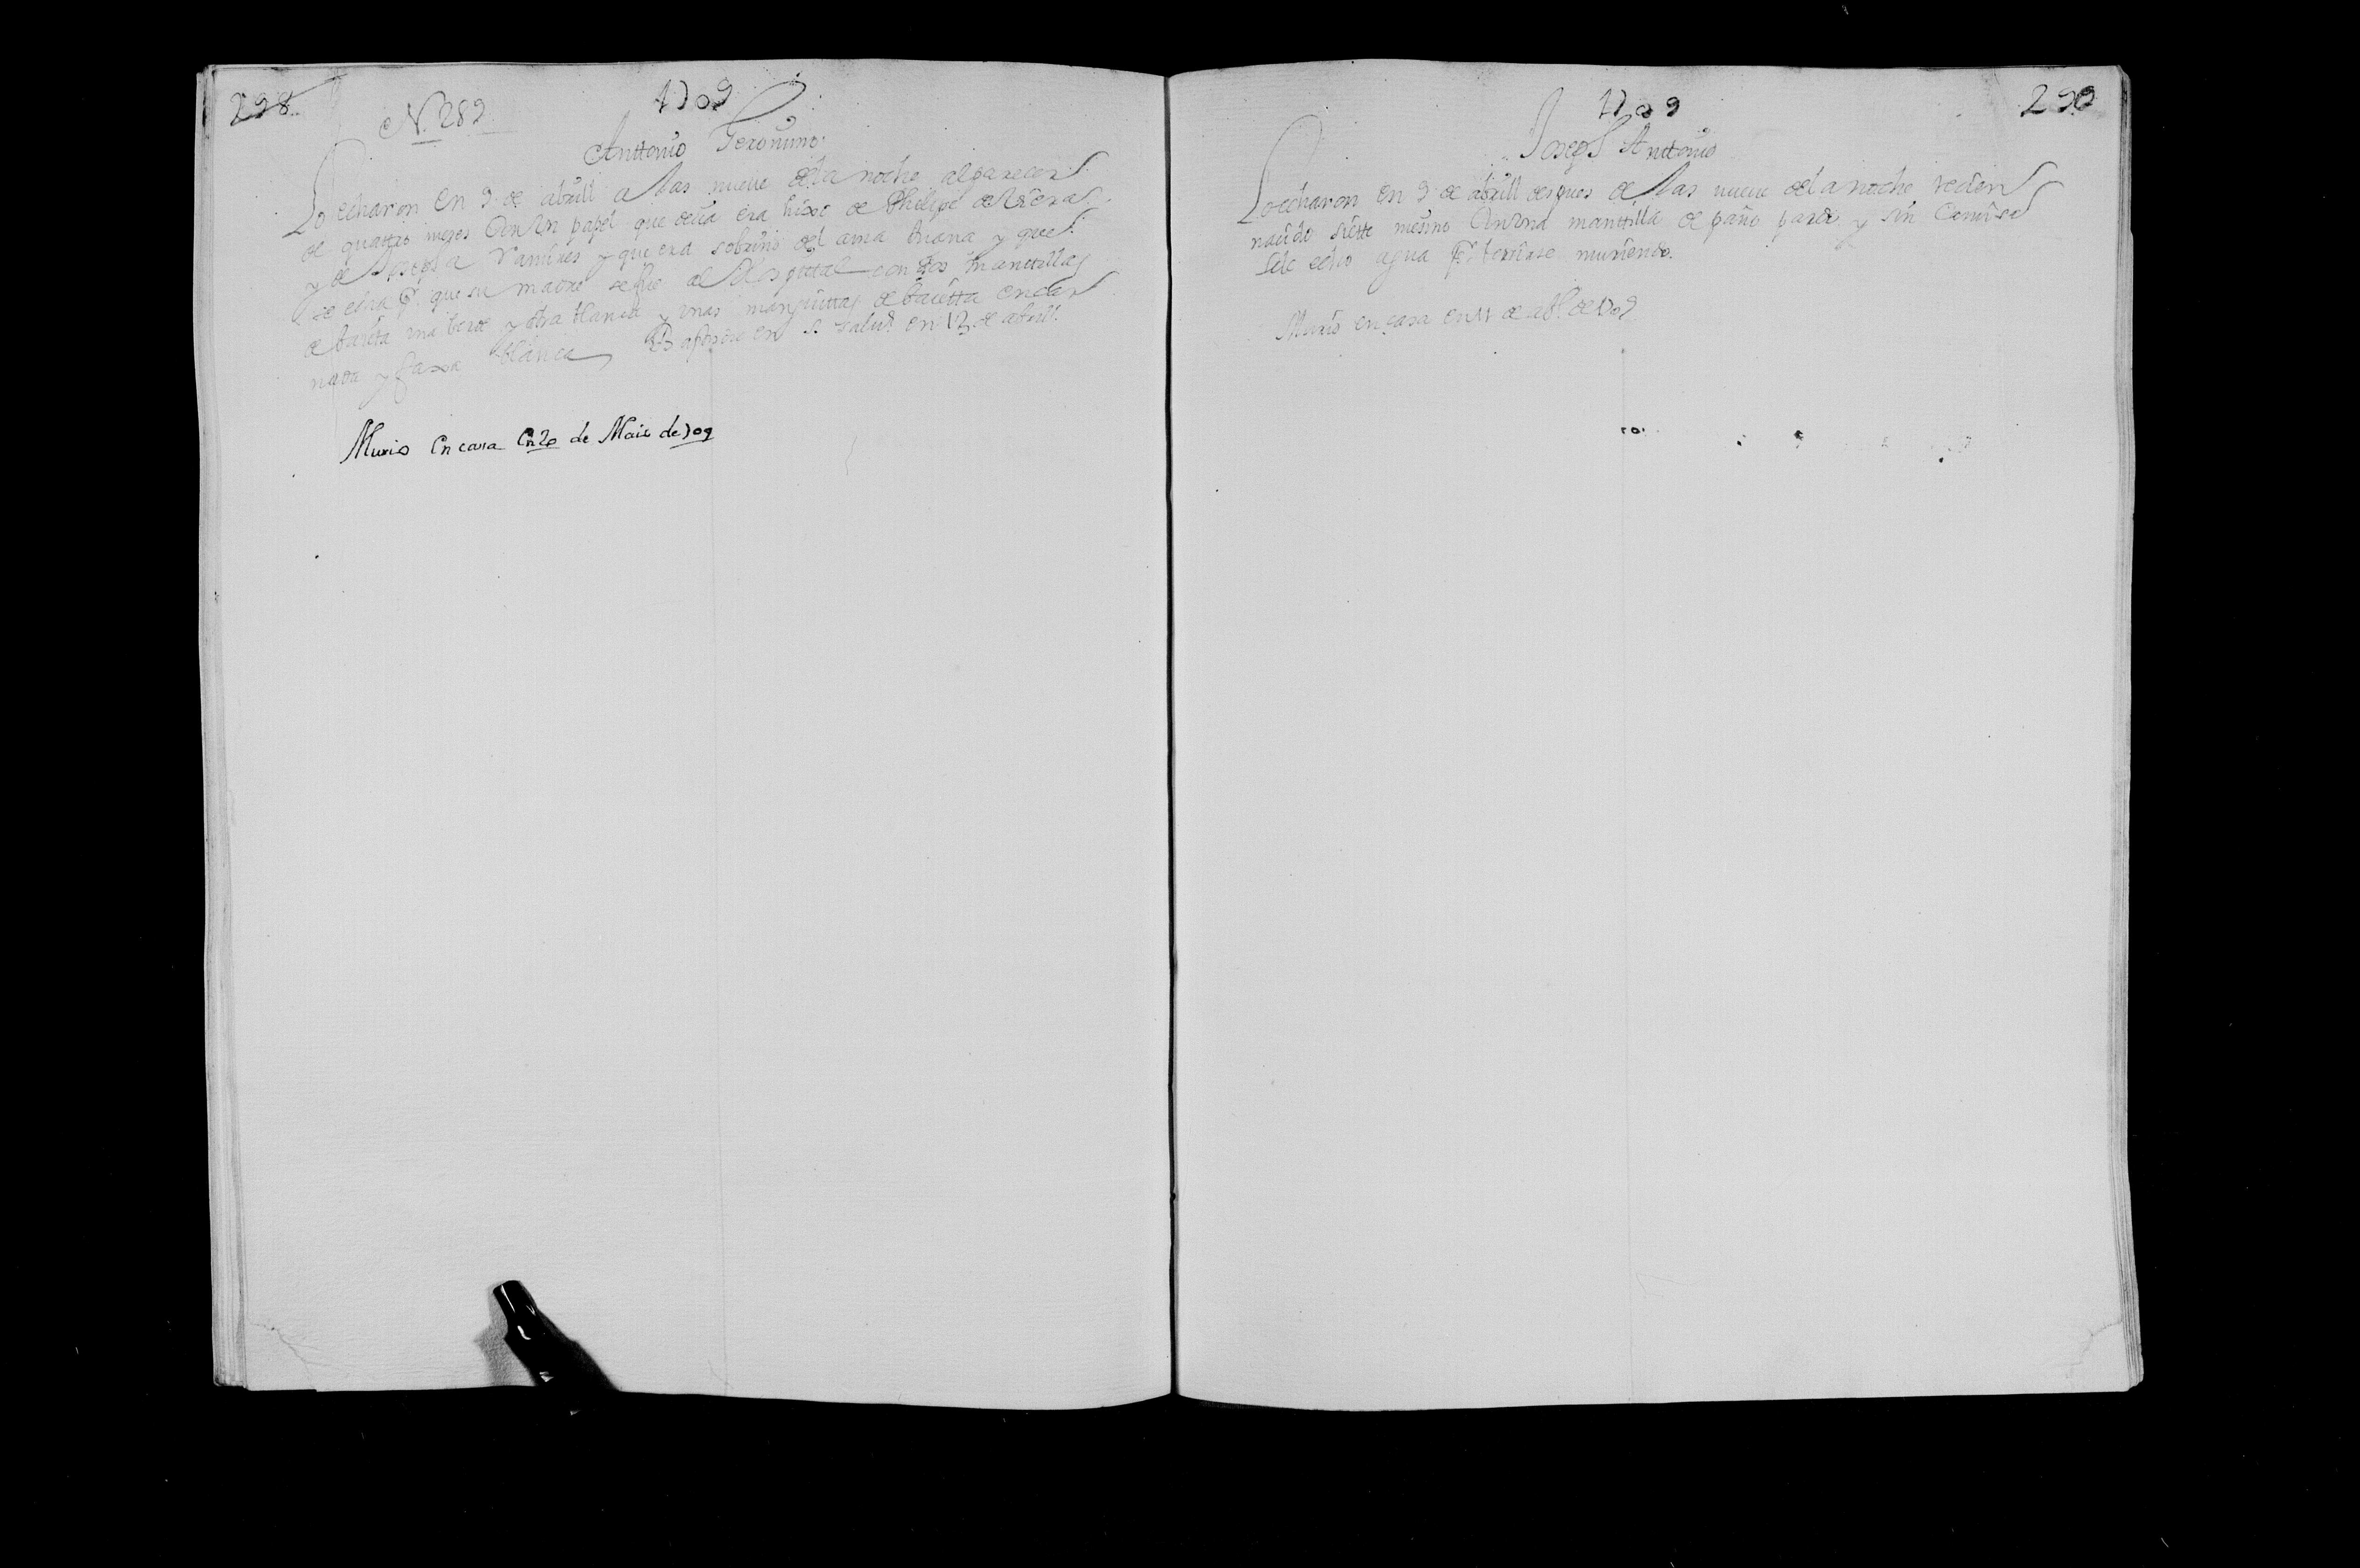 298
N. 289
1709
Anttonio Geronimo.
Lo echaron en 9 de abrill a las nueve de la noche al parecer
de quattro meses Con Un papel que decia era hixo de Phelipe de Riera
y de Josepha Ramires y que era sobrino del ama Juana y que
se echa P. que su madre se fue al Hospital con dos manttillas
de baieta una berde y otra blanca y unas manguittas de baietta encar
nada y faxa blanca Baptizose en S. Salud. en 12 de abrill.
Murio En casa En 20 de Maio de 709
1709
290
Joseph Anttonio
Lo echaron en 9 de abrill despues de las nueve de la noche recien
nacido siette mesino Con una manttilla de paño pardo y sin Camisa
Sele echo agua P. benirse muriendo.
Murio en casa en 11 de abl. de 1709